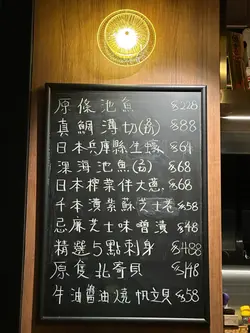 原條池魚 $228
真鯛薄切(例) $88
日本兵庫縣生蠔 $64
深海池魚(例) $68
日本榨菜伴大蔥 $68
千本漬紫蘇芝士卷 $58
忌廉芝士味噌漬 $48
精選5點刺身 $488
原隻北寄貝 $148
牛油醬油燒帆立貝 $58